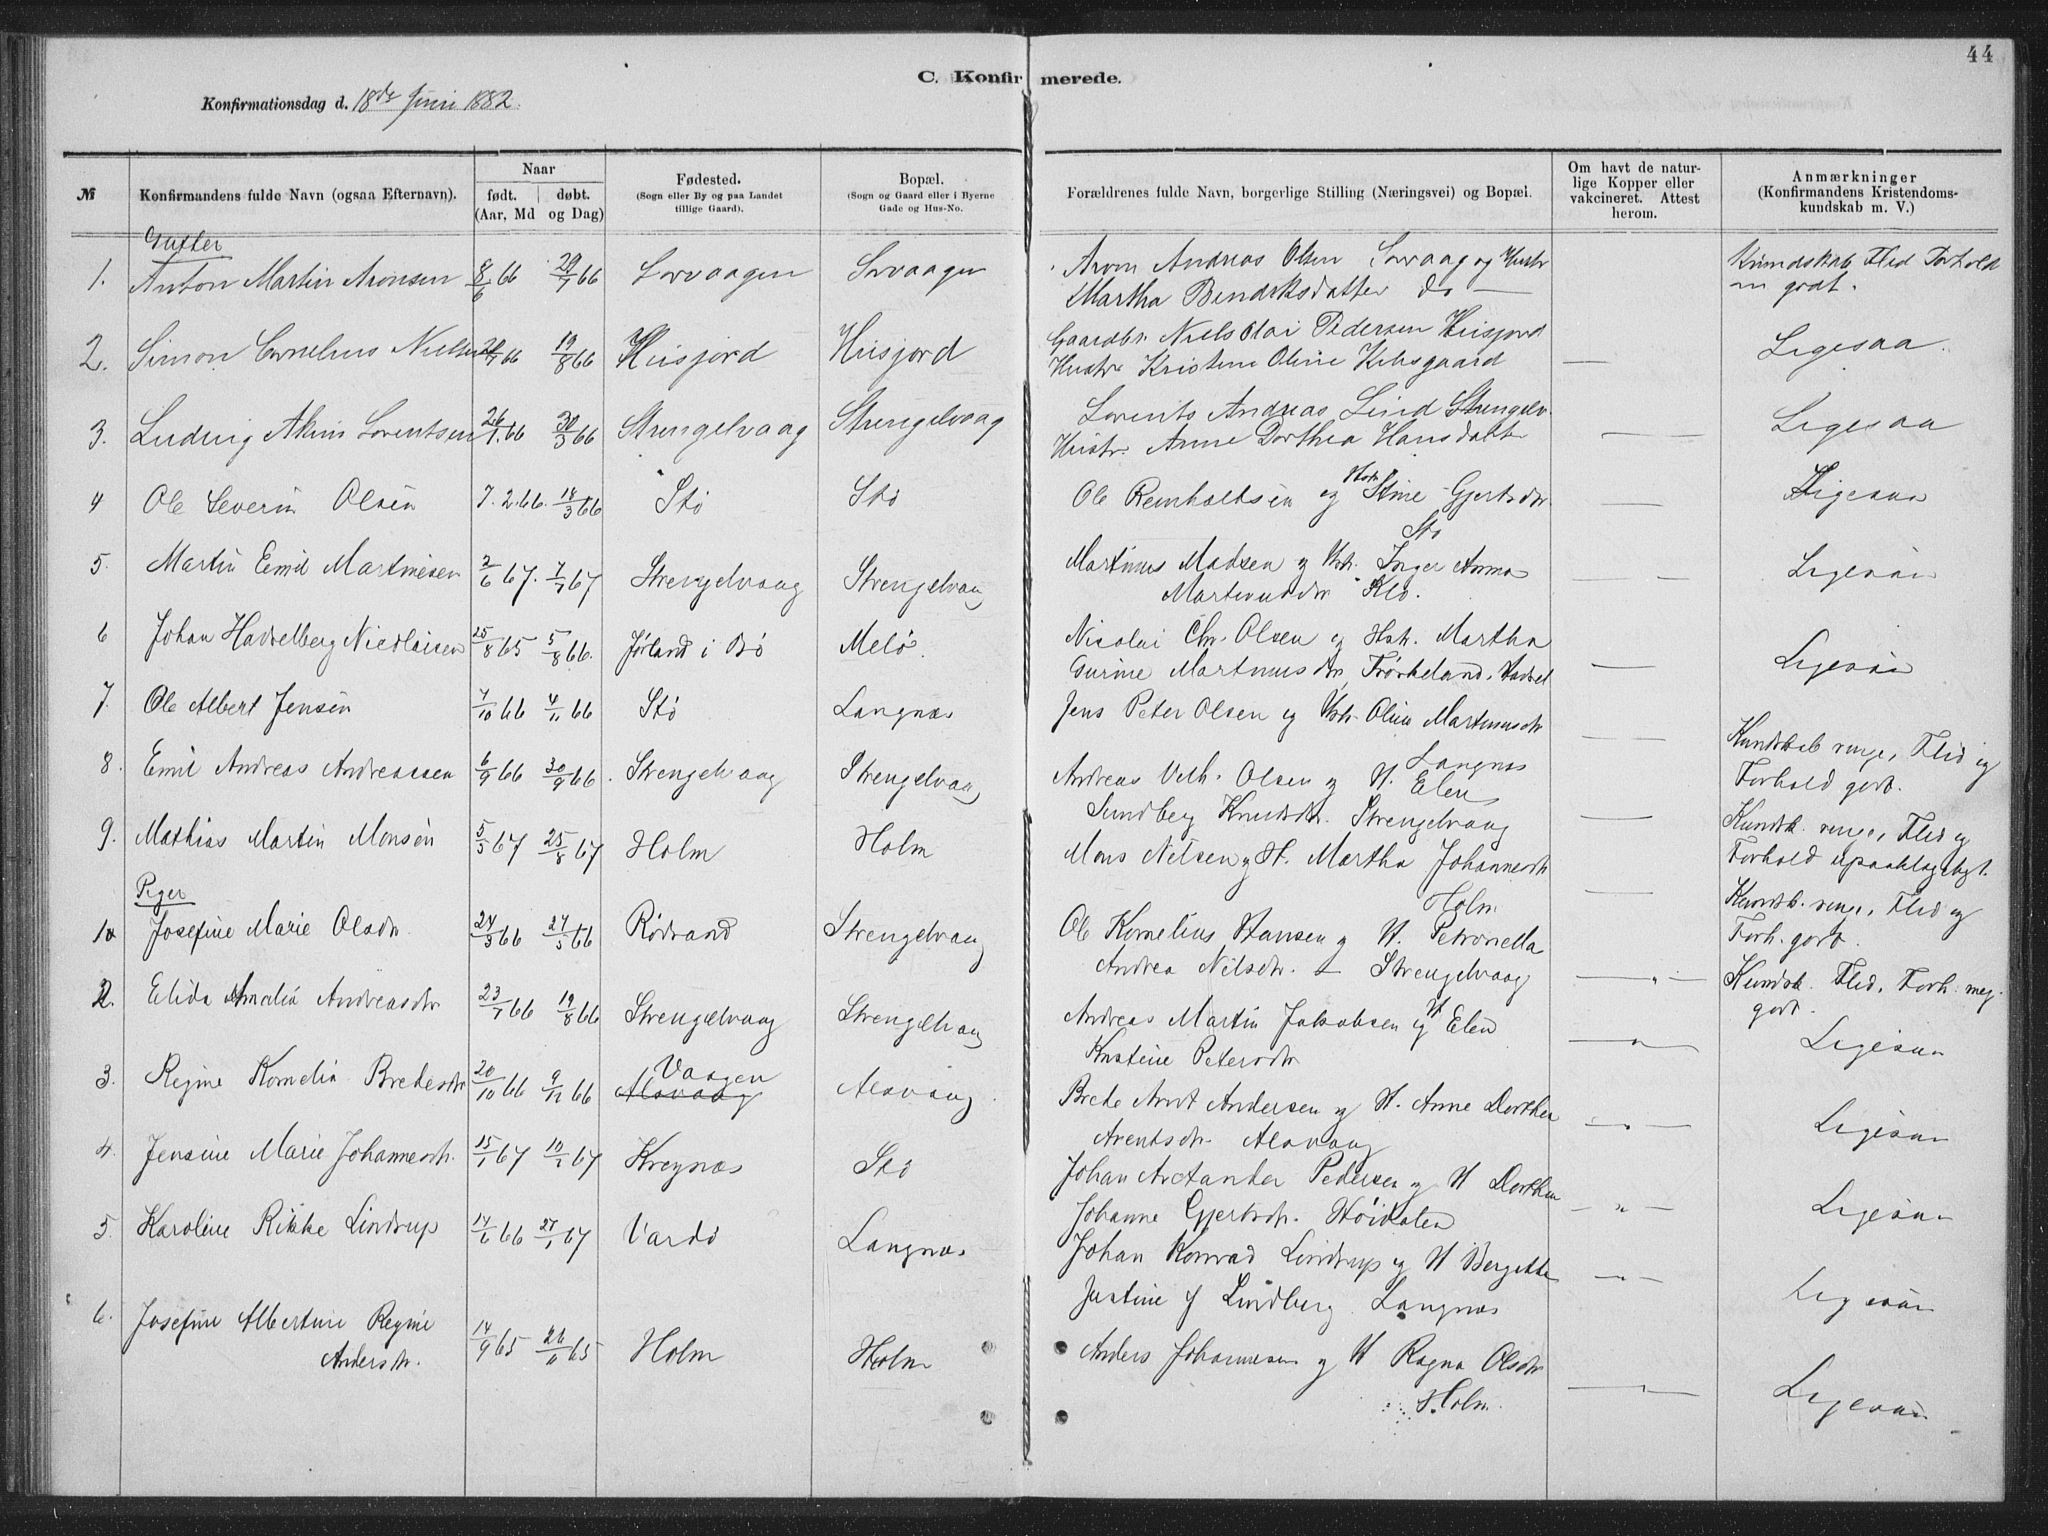 44
C. Konfirmerede.
Konfirmationsdag d. 18de Juni 1882.
№ Konfirmandens fulde Navn (ogsaa Efternavn). Naar født. døbt. (Aar, Md og Dag) Fødested. (Sogn eller By og paa Landet tillige Gaard). Bopæl. (Sogn og Gaard eller i Byerne Gade og Hus-No. Forældrenes fulde Navn, borgerlige Stilling (Næringsvei) og Bopæl. Om havt de naturlige Kopper eller vakcineret. Attest herom. Anmærkninger (Konfirmandens Kristendomskundskab m. V.)
Gutter
1. Anton Martin Aronsen 8/6 66 29/7 66 Sorvaagen Sorvaagen Aron Andreas Olsen Sorvaag og Hustr Kundskab Flid Forhold
Martha Bendiksdatter do — m godt.
2. Simon Cornelius Nielsen 66 19/8 66 Husjord Husjord Gaardbr. Niels Olai Pedersen Husjord
Hustr Kristine Oline Kilsgaard — Ligesaa.
3. Ludvig Akim Lorentsen 26/1 66 30/3 66 Strengelvaag Strengelvaag Lorents Andreas Lind Strengelv.
Hustr. Anne Dorthea Hansdatter — Ligesaa
4 Ole Severin Olsen 7. 2. 66. 18/3 66 Stø Stø Ole Reinholtsen og Hstr Stine Gjertsdtr.
Stø — Ligesaa
5. Martin Emil Martinesen 2/6 67. 7/7 67 Strengelvaag Strengelvaag Martinus Madsen og Hstr. Inger Anna
Martinusdtr Klo. — Ligesaa
6 Johan Hadselberg Nicolaisen 25/8 65 5/8 66. Jørland i Bø Melø. Nicolai Chr. Olsen og Hstr. Martha
Gurine Martinusdtr, Frørkeland, Hadsel — Ligesaa
7. Ole Albert Jensen 7/10 66 4/11 66 Stø Langnæs Jens Peter Olsen og Hstr Oline Martinusdtr
Langnæs — Kundskab ringe, Flid og
Forhold godt.
8. Emil Andreas Andreassen 6/9 66 30/9 66. Strengelvaag Strengelvaag Andreas Vilh. Olsen og H. Elen
Sundberg Knutsdtr. Strengelvaag — Kundsk. ringe, Flid og
Forhold upaaklageligt.
9. Mathias Martin Monsen 5/5 67 25/8 67 Holm Holm Mons Nilsen og H. Martha Johannesdtr
Holm — Kundsk. ringe, Flid og
Forh. godt.
Piger
10 Josefine Marie Olsdtr. 24/3 66 27/5 66 Rødsand Strengelvaag Ole Kornelius Hansen og H. Petronella
Andrea Nilsdtr. — Strengelvaag — " — Kundsk. Flid, Forh. meg.
godt.
2. Elida Amalia Andreasdtr 23/7 66 19/8 66 Strengelvaag Strengelvaag Andreas Martin Jakobsen og H Elen
Kristine Petersdtr — " — Ligesaa
3. Regine Kornelia Bredesdtr 20/10 66 9/12 66 Vaagen
Alsvaag Alsvaag. Brede Arnt Andersen og H. Anne Dorthea
Arentsdtr. Alsvaag — " — Ligesaa
4. Jensine Marie Johannesdtr. 15/1 67 67 Kregnæs Stø Johan Arctander Pedersen og H Dorthea
Johanne Gjertsdtr. Høidalen — " — Ligesaa
5. Karoline Rikke Lindrup 14/6 66 27/1 67 Vardø Langnæs Johan Konrad Lindrup og H Bergitte
Justine f Lindberg Langnæs — " — Ligesaa
6. Josefine Albertine Regine
Andersdtr. 14/9 65 26/11 65 Holm Holm Anders Johannesen og H Ragna Olsdtr
Holm. — " — Ligesaa